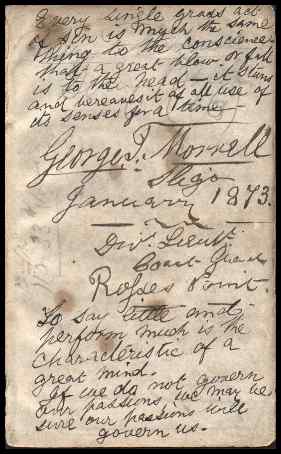 Every single gross act
of sin is much the same
thing to the conscience
that a great blow or fall
is to the head – it stuns
and bereaves it of all use of
its senses for a time –
George T. Morrell
Sligo
January 1873.
Div. Lieut.
Coast Guard
Rosses Point.
To say little and
perform much is the
characteristic of a
great mind.
If we do not govern
our passions, we may be
sure our passions will
govern us.